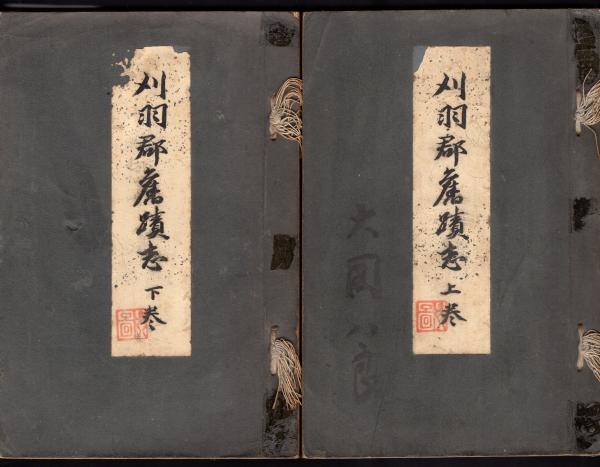 刈羽郡舊蹟志 上巻
大図八郎
刈羽郡舊蹟志 下巻